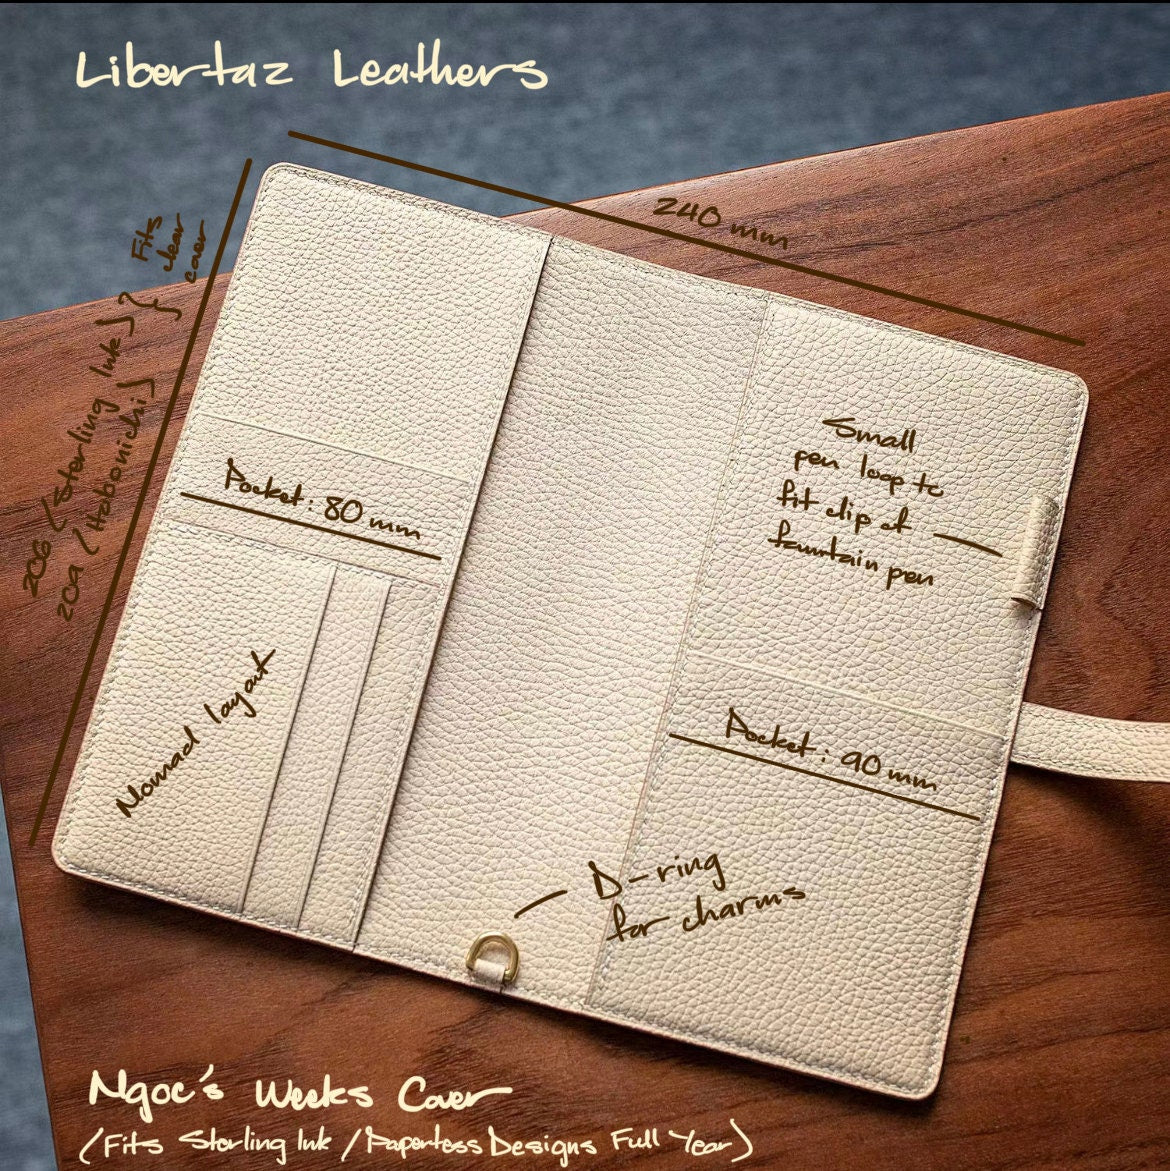 Libertaz Leathers
240 mm
Fits
clear
cover
206 (Sterling Ink)
209 (Hobonichi)
Small
pen loop to
fit clip of
fountain pen
Pocket: 80 mm
Nomad layout
Pocket: 90 mm
D-ring
for charms
Ngoc's Weeks Cover
(Fits Sterling Ink / Paperless Designs Full Year)